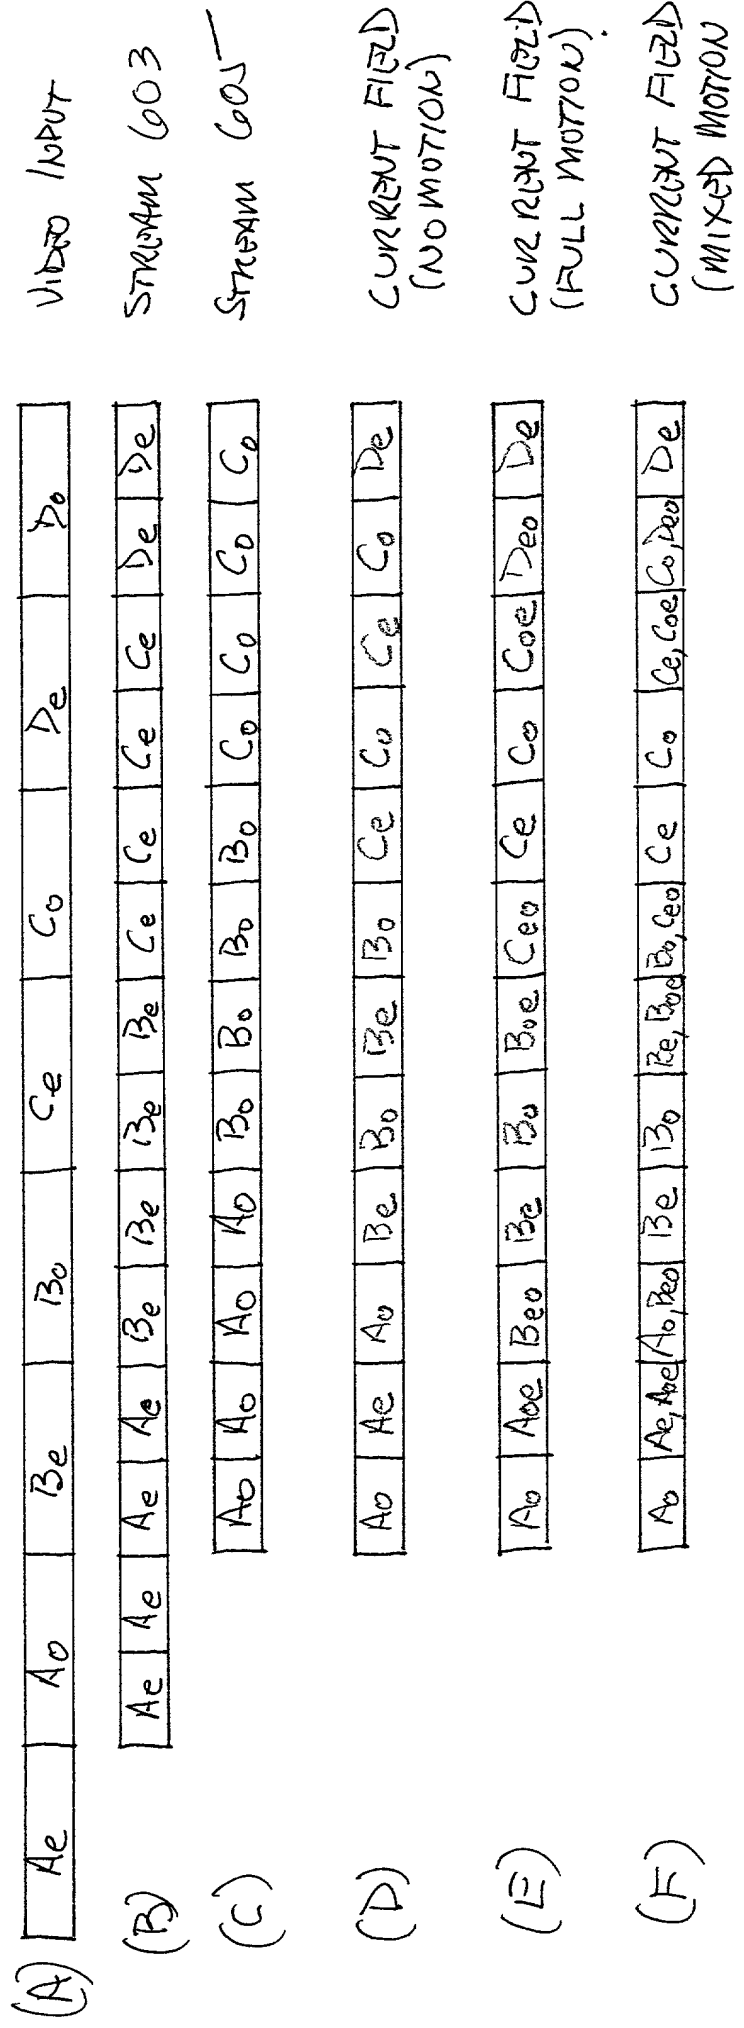 (A) Ae Ao Be Bo Ce Co De Do VIDEO INPUT
(B) Ae Ae Ae Ae Be Be Be Be Ce Ce Ce Ce De De STREAM 603
(C) Ao Ao Ao Ao Bo Bo Bo Bo Co Co Co Co STREAM 605
(D) Ao Ae Ao Be Bo Be Bo Ce Co Ce Co De CURRENT FIELD
(NO MOTION)
(E) Ao Aoe Beo Be Bo Boe Ceo Ce Co Coe Deo De CURRENT FIELD
(FULL MOTION).
(F) Ao Ae, Aoe Ao, Beo Be Bo Be, Boe Bo, Ceo Ce Co Ce, Coe Co, Deo De CURRENT FIELD
(MIXED MOTION